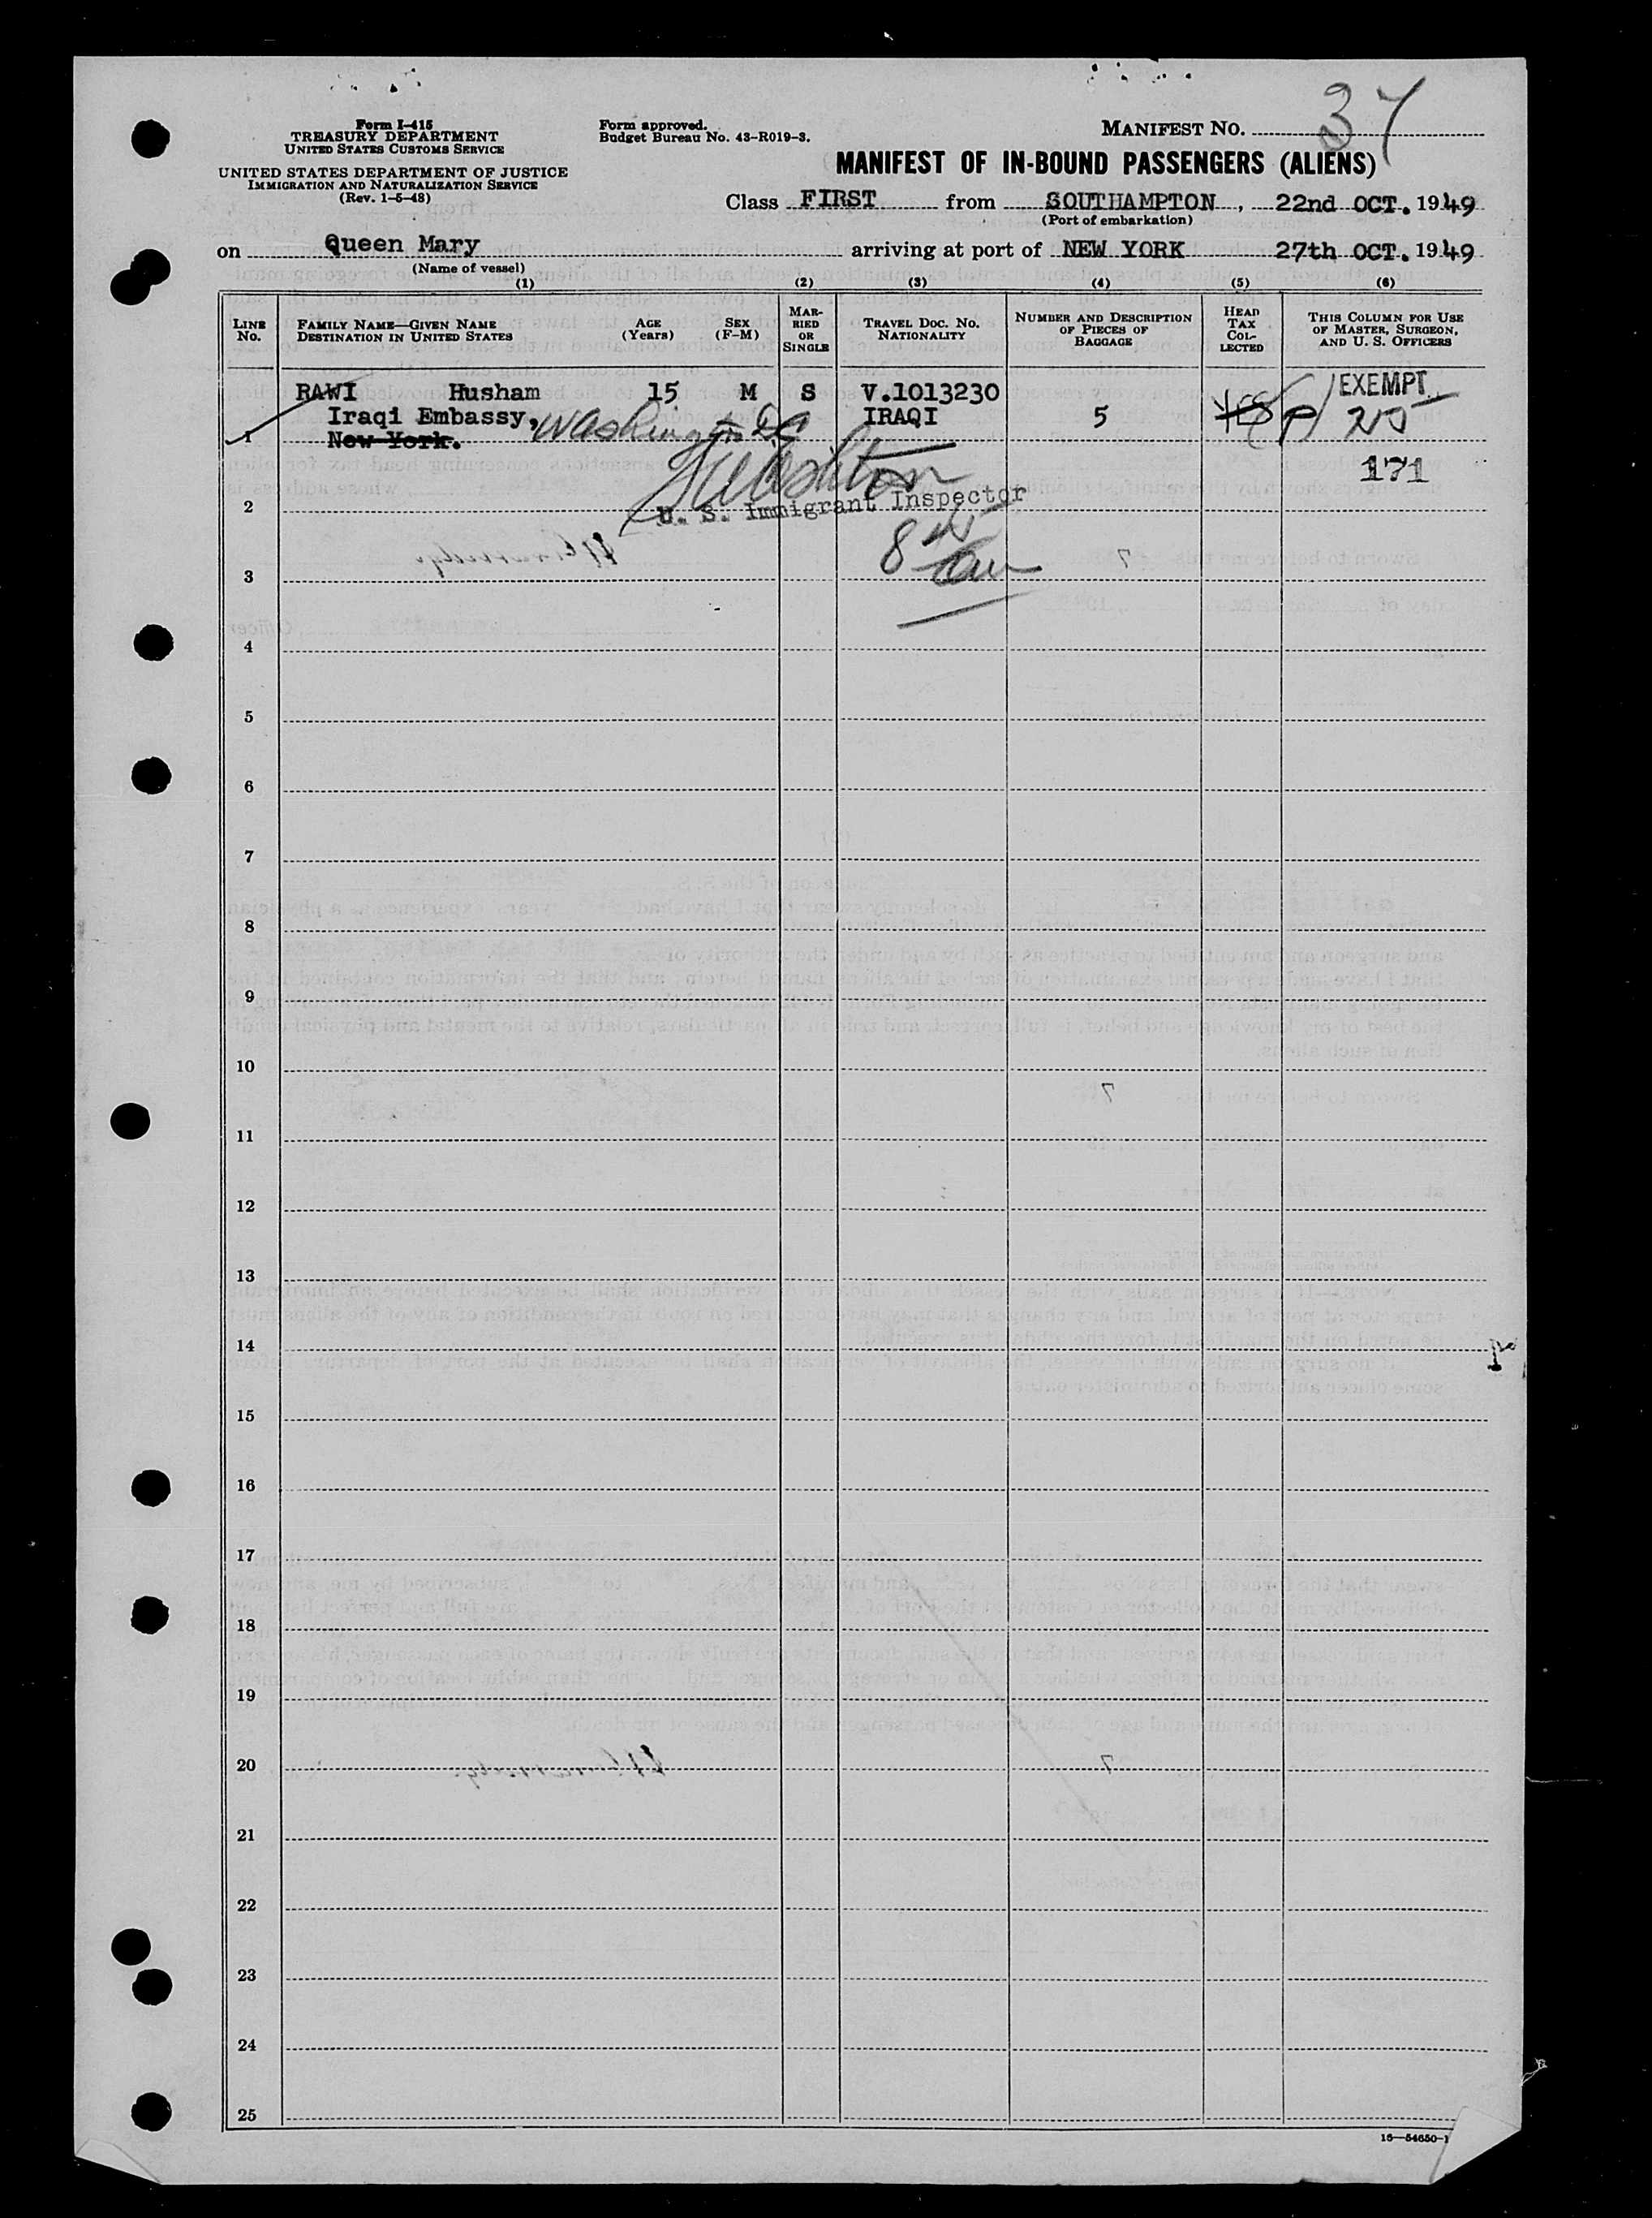 Form I-415
TREASURY DEPARTMENT
UNITED STATES CUSTOMS SERVICE
UNITED STATES DEPARTMENT OF JUSTICE
IMMIGRATION AND NATURALIZATION SERVICE
(Rev. 1-5-48)
Form approved.
Budget Bureau No. 43-R019-3.
MANIFEST NO. 37
MANIFEST OF IN-BOUND PASSENGERS (ALIENS)
Class FIRST from SOUTHAMPTON, 22nd OCT. 1949
(Port of embarkation)
on Queen Mary arriving at port of NEW YORK 27th OCT. 1949
(Name of vessel)
(1) (2) (3) (4) (5) (6)
LINE No. FAMILY NAME—GIVEN NAME DESTINATION IN UNITED STATES AGE (Years) SEX (F-M) MARRIED OR SINGLE TRAVEL DOC. NO. NATIONALITY NUMBER AND DESCRIPTION OF PIECES OF BAGGAGE HEAD TAX COLLECTED THIS COLUMN FOR USE OF MASTER, SURGEON, AND U. S. OFFICERS
RAWI Husham 15 M S V.1013230 EXEMPT
Iraqi Embassy, Washington DC IRAQI 5 YES
1 New York.
171
2 U. S. Immigrant Inspector
3
4
5
6
7
8
9
10
11
12
13
14
15
16
17
18
19
20
21
22
23
24
25
16—54650-1